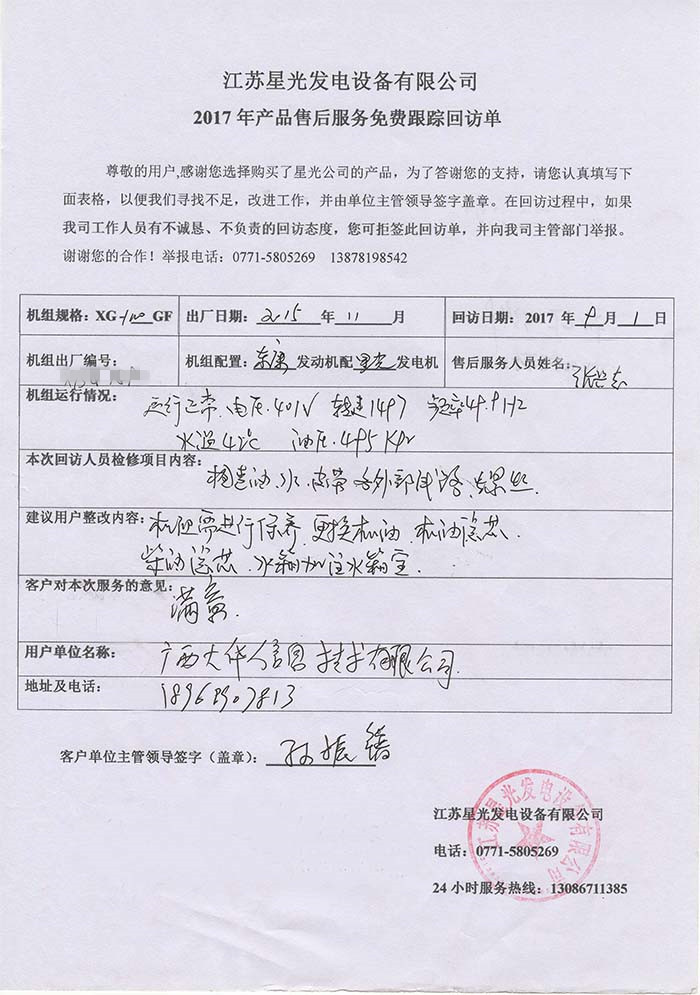 江苏星光发电设备有限公司
2017 年产品售后服务免费跟踪回访单
尊敬的用户,感谢您选择购买了星光公司的产品，为了答谢您的支持，请您认真填写下
面表格，以便我们寻找不足，改进工作，并由单位主管领导签字盖章。在回访过程中，如果
我司工作人员有不诚恳、不负责的回访态度，您可拒签此回访单，并向我司主管部门举报。
谢谢您的合作！举报电话：0771-5805269 13878198542
机组规格：XG-100GF 出厂日期：2015 年 11 月 回访日期：2017 年 9 月 1 日
机组出厂编号： 机组配置：东康 发动机配 星光 发电机 售后服务人员姓名：
机组运行情况：
运行正常、电压401V 转速1497 频率49.9HZ
水温 油压495KPa
本次回访人员检修项目内容：
检查油、水、皮带各外部线路、螺丝.
建议用户整改内容：
机组需进行保养、更换机油、机油滤芯、
柴油滤芯、水箱加注水箱宝.
客户对本次服务的意见：
满意
用户单位名称：
广西大华信息技术有限公司
地址及电话：
18968907813
客户单位主管领导签字（盖章）： 孙振
江苏星光发电设备有限公司
电话：0771-5805269
24 小时服务热线：13086711385
江苏星光发电设备有限公司